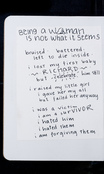 being a woman
is not what it seems
bruised battered
left to die inside
i lost my first baby
RICHARD
but him
i raised my little girl
i gave her my all
but failed her anyway
i was a victim
i am a SURVIVOR
i hated him
i hated them
i am forgiving them